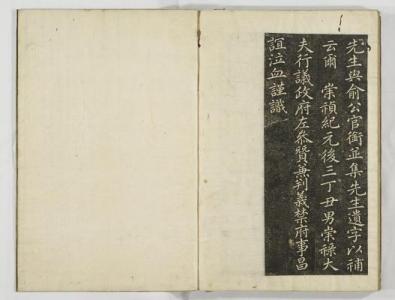 先生與俞公官銜並集先生遺字以補
云爾　崇禎紀元後三丁丑男崇祿大
夫行議政府左叅贊兼判義禁府事昌
誼泣血謹識